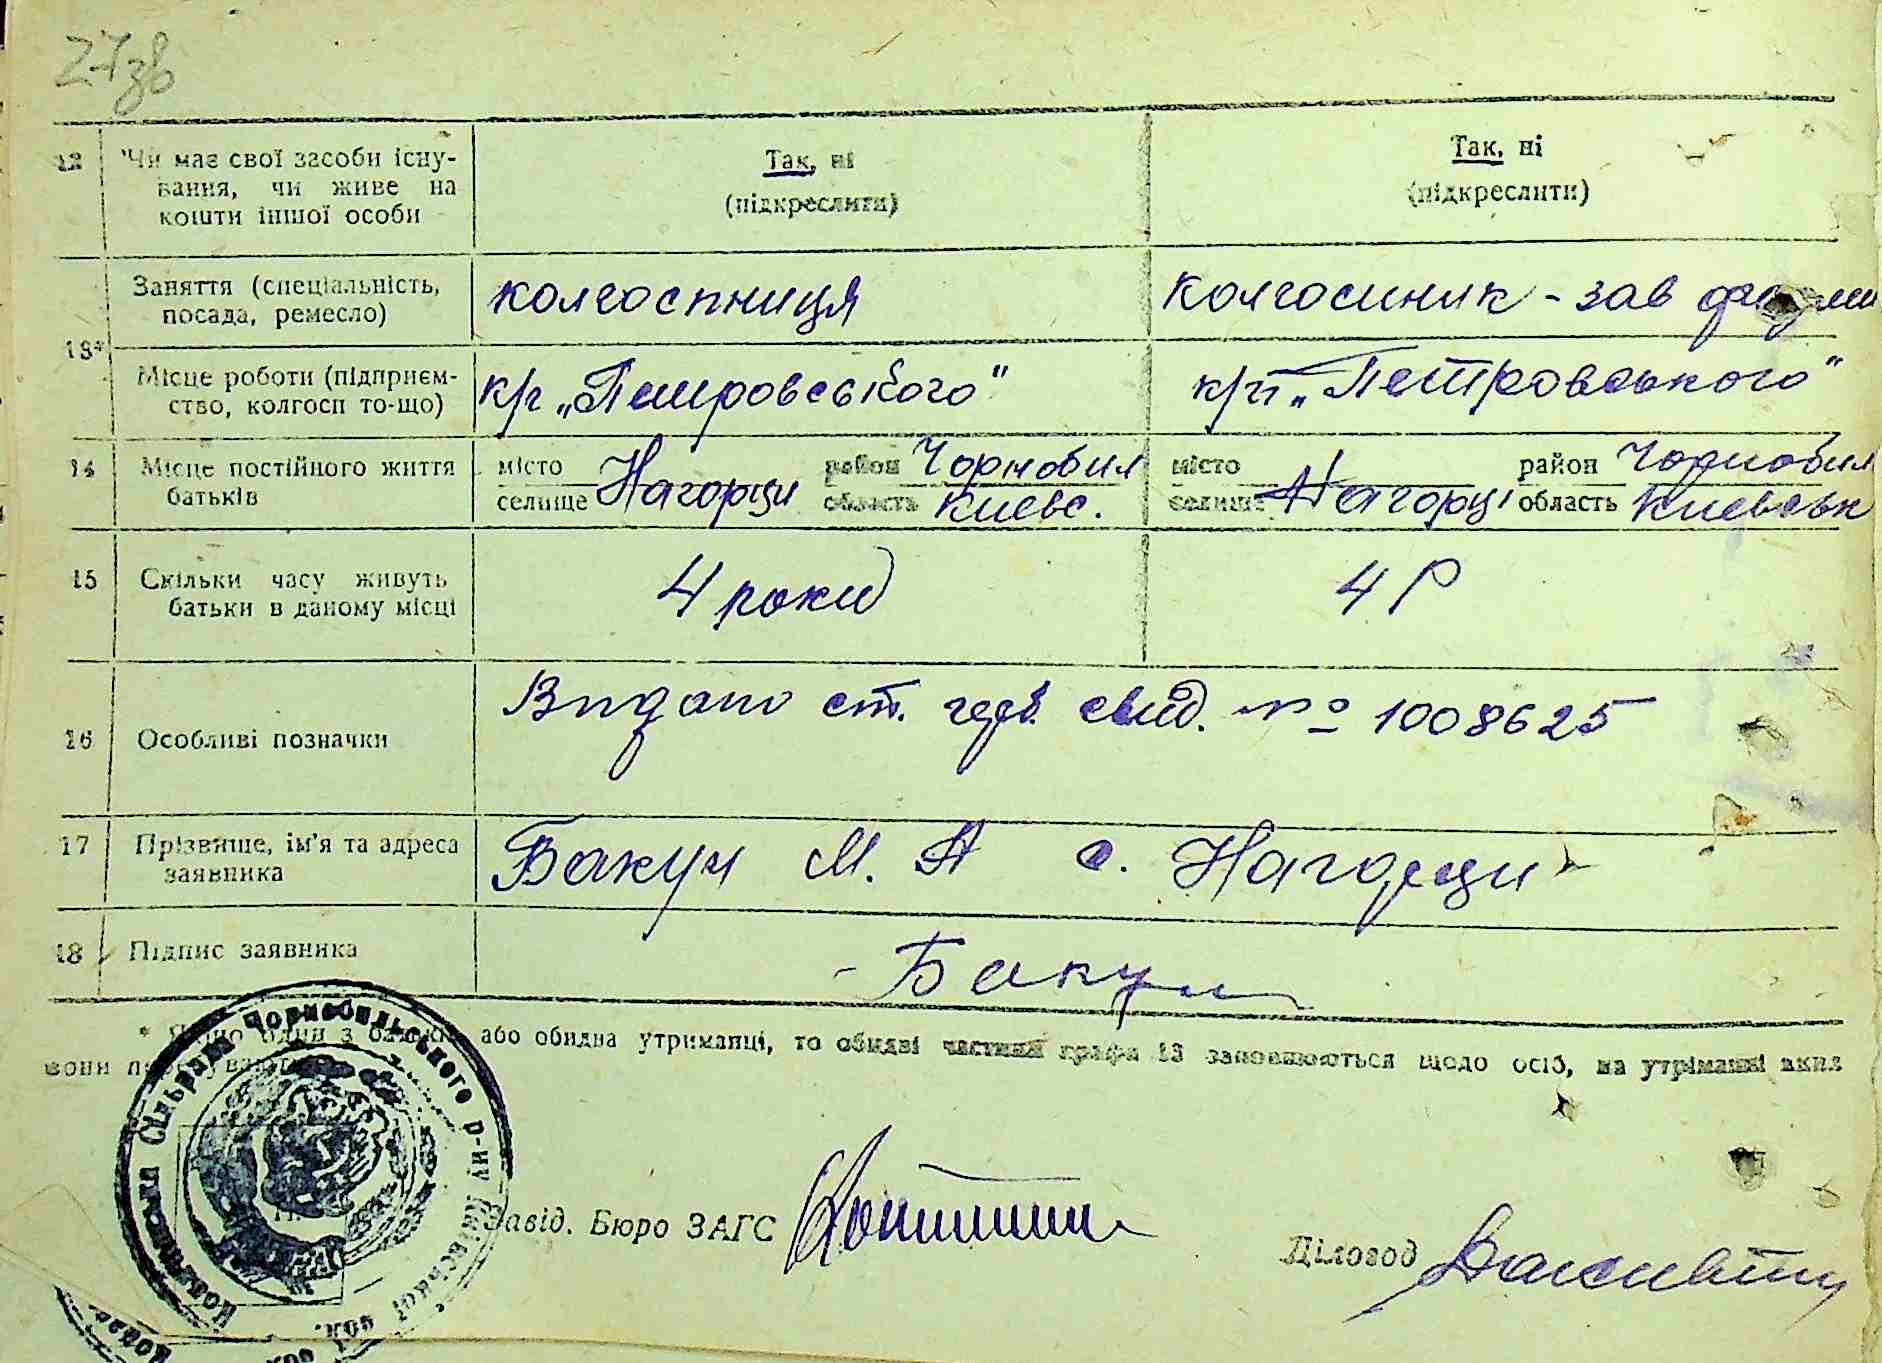 27зв
12 Чи має свої засоби існу-
вання, чи живе на
кошти іншої особи
Так, ні
(підкреслити)
Так, ні
(підкреслити)
13*
Заняття (спеціальність,
посада, ремесло)
колгоспниця
колгоспник - зав ферми
Місце роботи (підприєм-
ство, колгосп то-що)
к/г „Петровського"
к/г „Петровського"
14 Місце постійного життя
батьків
місто
селище Нагорци
район Чорнобил
область Киевс.
місто
селище Нагорці
район Чорнобил
область Киевськ
15 Скільки часу живуть
батьки в даному місці
4 роки
4 р
16 Особливі позначки
Видано ст. герб. свид. № 1008625
17 Прізвище, ім'я та адреса
заявника
Бакун М. А с. Нагорци
18 Підпис заявника
Бакун
* Якщо один з батьків або обидва утриманці, то обидві частини графи 13 заповнюються щодо осіб, на утриманні яких
вони перебувають
Сільрада Чорнобильського р-ну Київської обл.
Завід. Бюро ЗАГС
Діловод